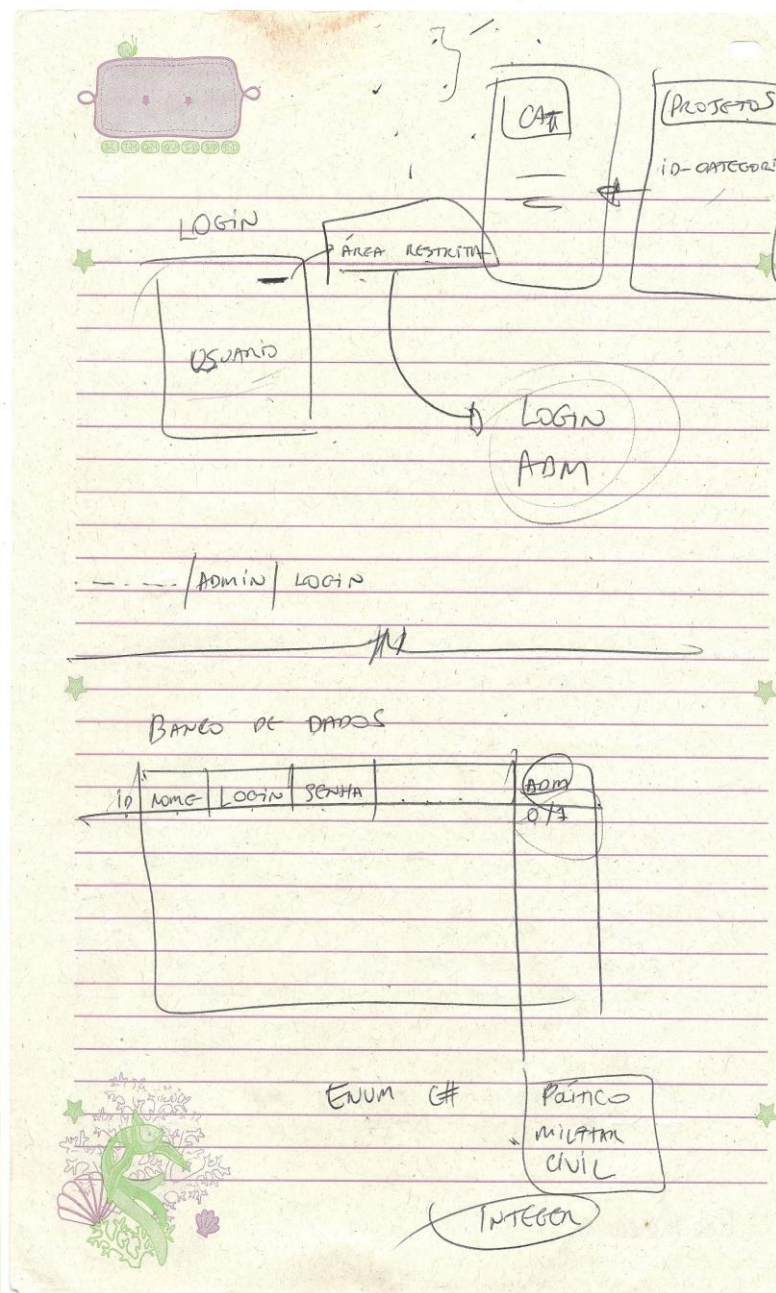 CAT
PROJETOS
ID-CATEGORI
LOGIN
ÁREA RESTRITA
USUARIO
LOGIN
ADM
/ADMIN/ LOGIN
BANCO DE DADOS
ID NOME LOGIN SENHA ....... ADM
0/1
ENUM C#
POÍTICO
MILITAR
CIVIL
INTEGER